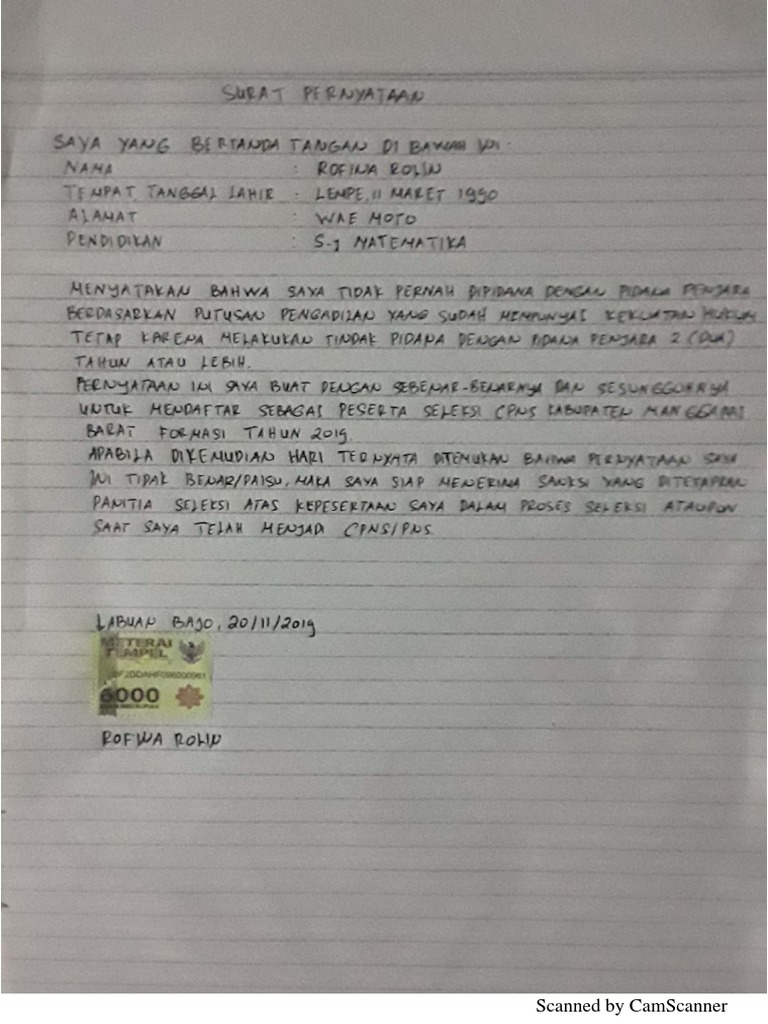 SURAT PERNYATAAN
SAYA YANG BERTANDA TANGAN DI BAWAH INI :
NAMA : ROFINA ROLIN
TEMPAT, TANGGAL LAHIR : LEMPE, 11 MARET 1990
ALAMAT : WAE MOTO
PENDIDIKAN : S-1 MATEMATIKA
MENYATAKAN BAHWA SAYA TIDAK PERNAH DIPIDANA DENGAN PIDANA PENJARA
BERDASARKAN PUTUSAN PENGADILAN YANG SUDAH MEMPUNYAI KEKUATAN HUKUM
TETAP KARENA MELAKUKAN TINDAK PIDANA DENGAN PIDANA PENJARA 2 (DUA)
TAHUN ATAU LEBIH.
PERNYATAAN INI SAYA BUAT DENGAN SEBENAR-BENARNYA DAN SESUNGGUHNYA
UNTUK MENDAFTAR SEBAGAI PESERTA SELEKSI CPNS KABUPATEN MANGGARAI
BARAT FORMASI TAHUN 2019.
APABILA DIKEMUDIAN HARI TERNYATA DITEMUKAN BAHWA PERNYATAAN SAYA
INI TIDAK BENAR/PALSU, MAKA SAYA SIAP MENERIMA SANKSI YANG DITETAPKAN
PANITIA SELEKSI ATAS KEPESERTAAN SAYA DALAM PROSES SELEKSI ATAUPUN
SAAT SAYA TELAH MENJADI CPNS/PNS.
LABUAN BAJO, 20/11/2019
METERAI
TEMPEL
6000
ROFINA ROLIN
Scanned by CamScanner